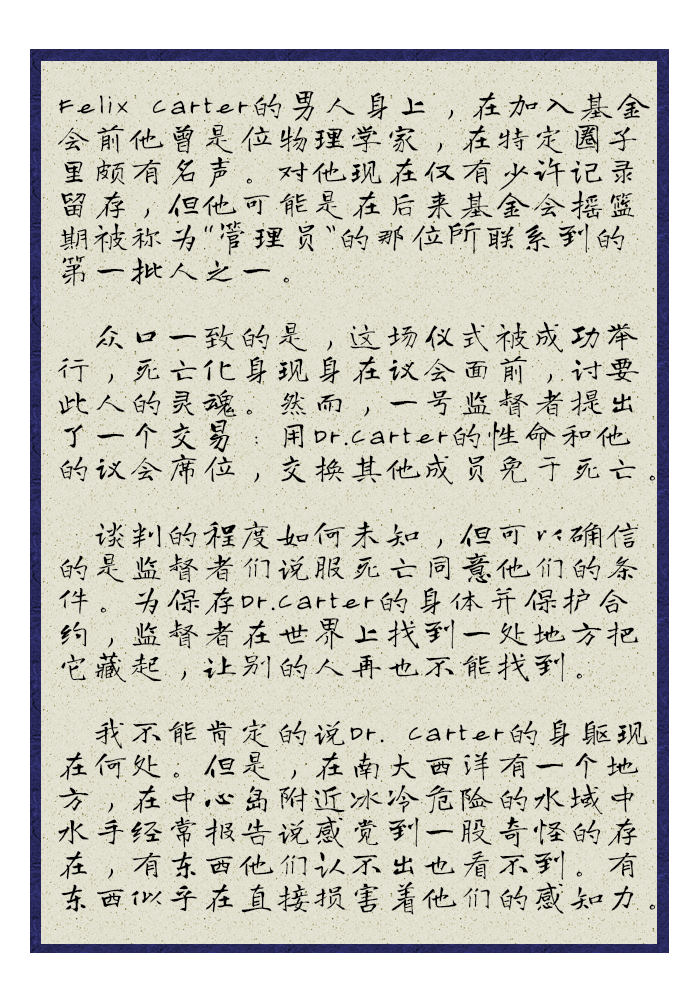 Felix Carter的男人身上，在加入基金
会前他曾是位物理学家，在特定圈子
里颇有名声。对他现在仅有少许记录
留存，但他可能是在后来基金会摇篮
期被称为"管理员"的那位所联系到的
第一批人之一。
众口一致的是，这场仪式被成功举
行，死亡化身现身在议会面前，讨要
此人的灵魂。然而，一号监督者提出
了一个交易：用Dr.Carter的性命和他
的议会席位，交换其他成员免于死亡。
谈判的程度如何未知，但可以确信
的是监督者们说服死亡同意他们的条
件。为保存Dr.Carter的身体并保护合
约，监督者在世界上找到一处地方把
它藏起，让别的人再也不能找到。
我不能肯定的说Dr. Carter的身躯现
在何处。但是，在南大西洋有一个地
方，在中心岛附近冰冷危险的水域中
水手经常报告说感觉到一股奇怪的存
在，有东西他们认不出也看不到。有
东西似乎在直接损害着他们的感知力。